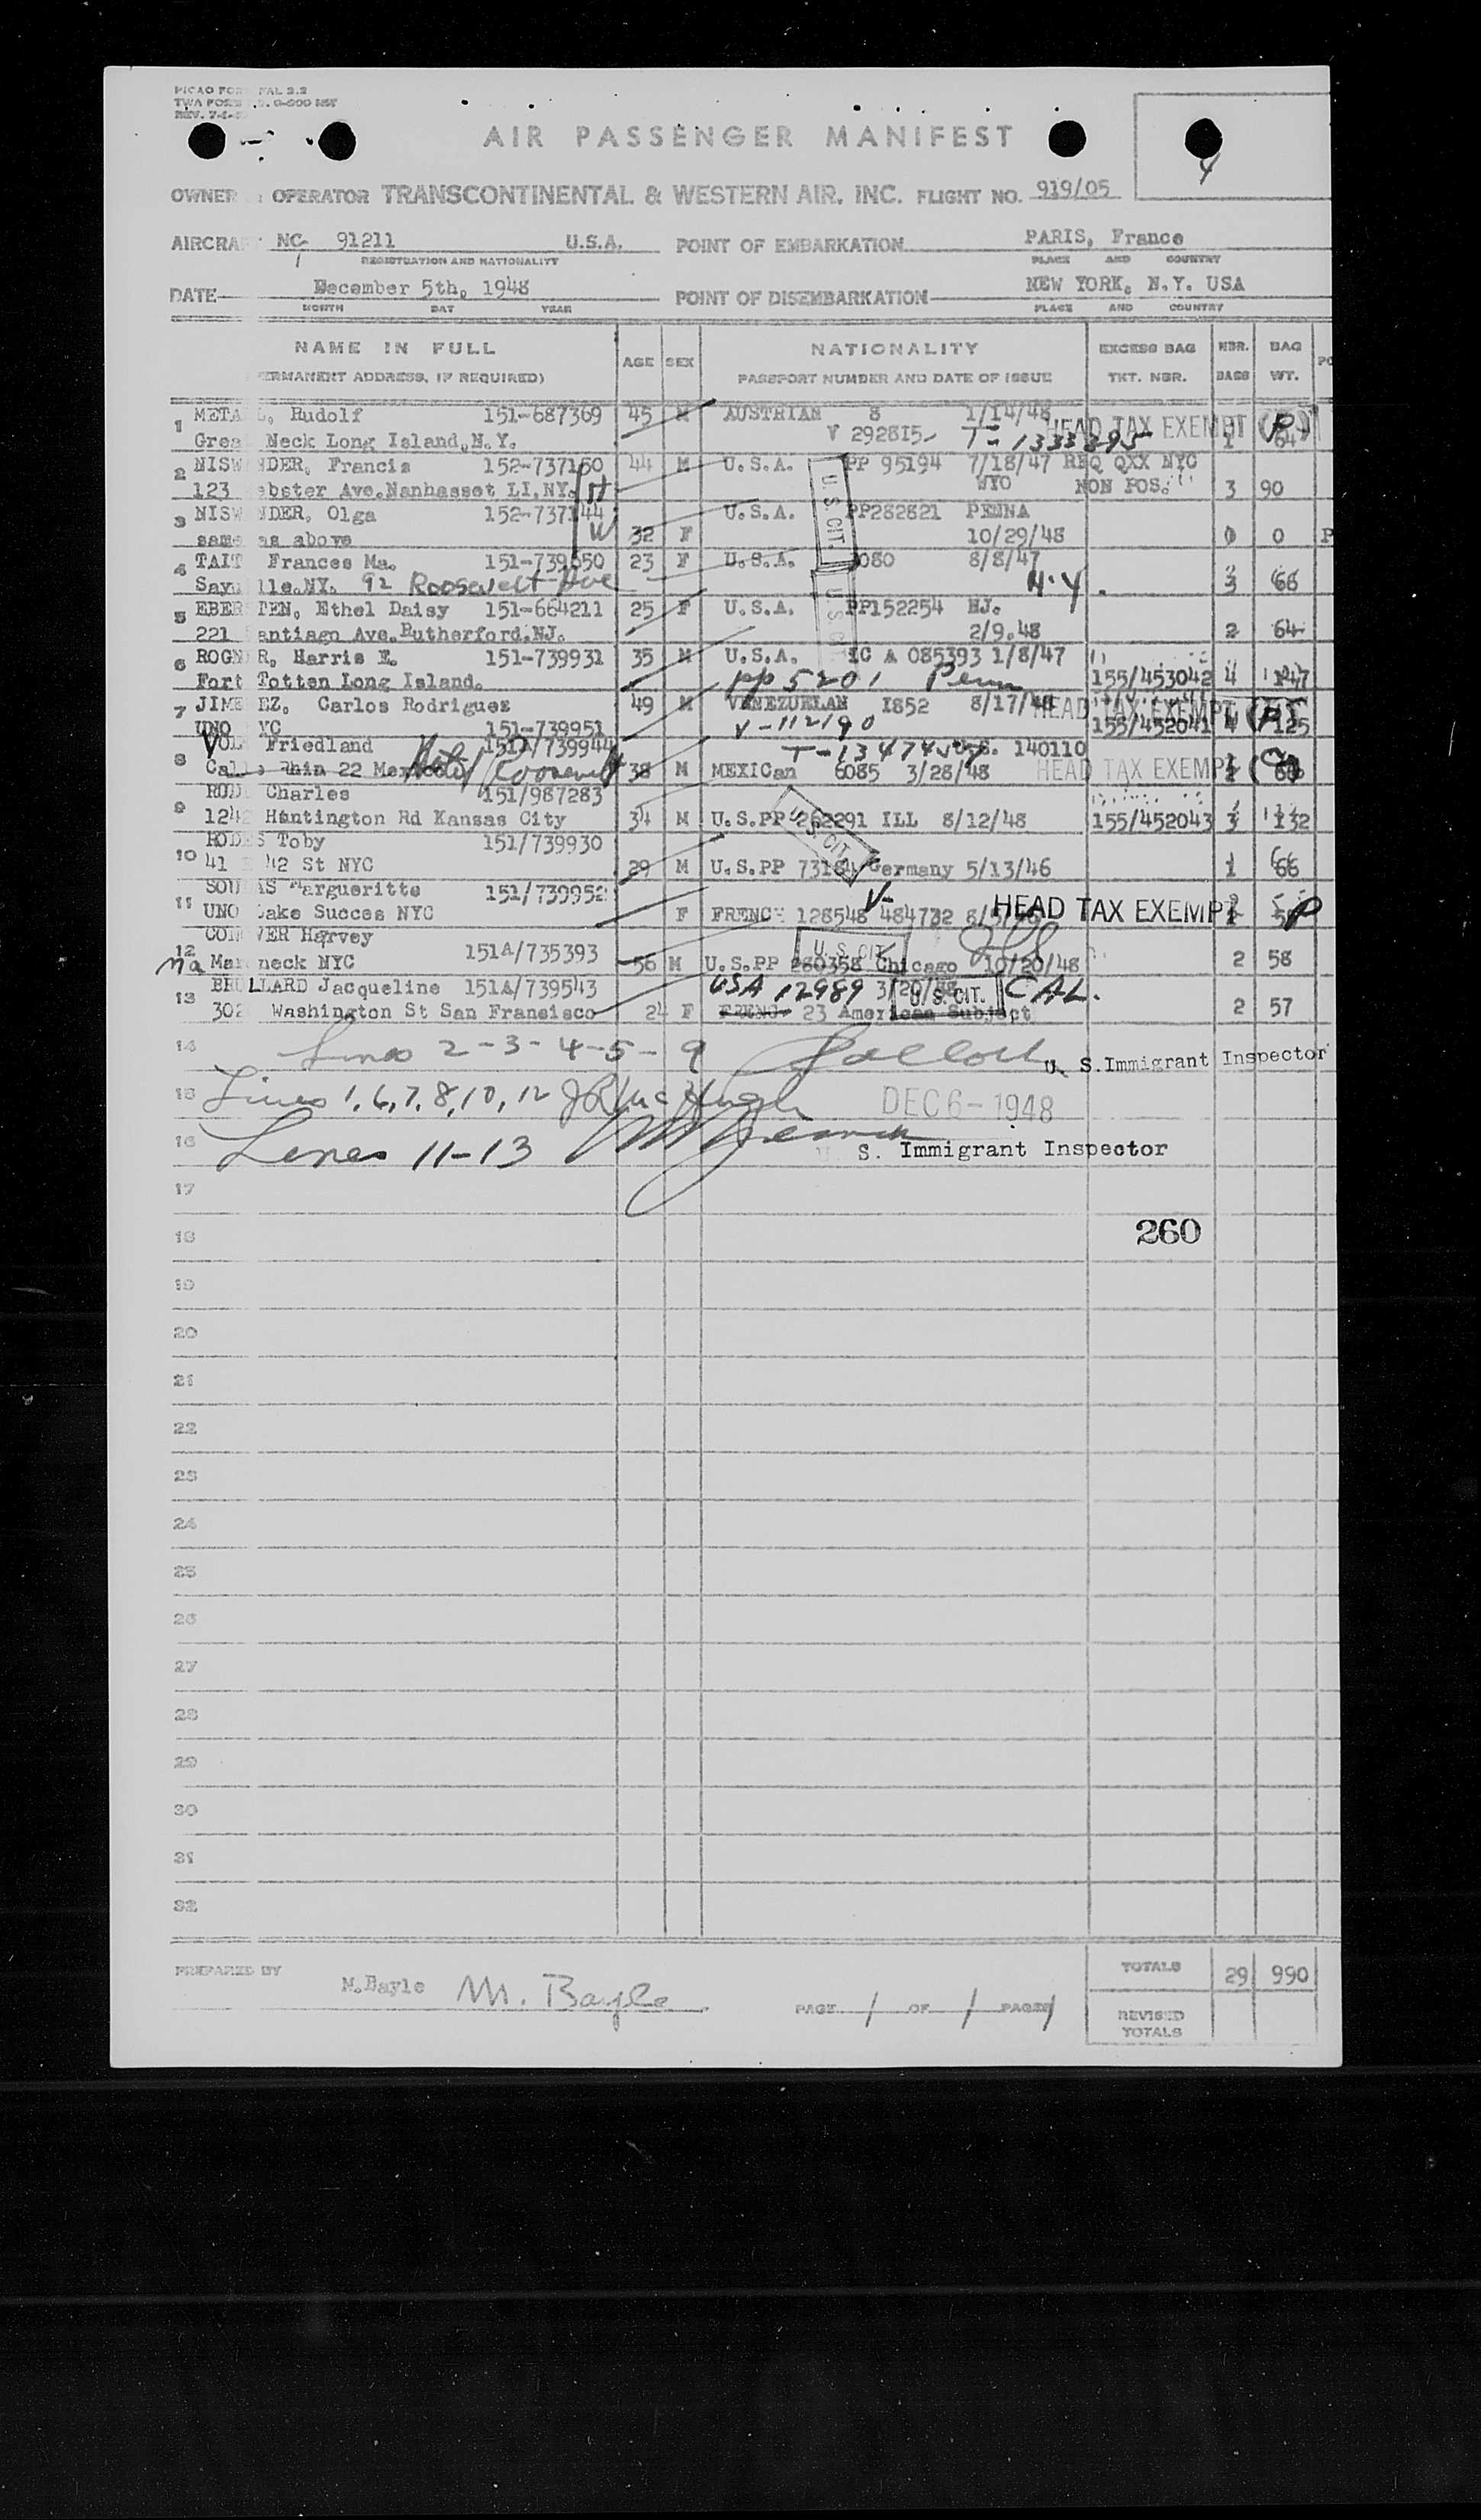 PICAO FOR FAL 2.2
TWA FORM
REV. 7-1-
AIR PASSENGER MANIFEST
4
OWNER OPERATOR TRANSCONTINENTAL & WESTERN AIR, INC. FLIGHT NO. 919/05
AIRCRA NC- 91211 U.S.A. POINT OF EMBARKATION PARIS, France
REGISTRATION AND NATIONALITY PLACE AND COUNTRY
DATE December 5th, 1948 POINT OF DISEMBARKATION NEW YORK, N.Y. USA
MONTH DAY YEAR PLACE AND COUNTRY
NAME IN FULL AGE SEX NATIONALITY EXCESS BAG NBR. BAG PO
ERMANENT ADDRESS, IF REQUIRED) PASSPORT NUMBER AND DATE OF ISSUE TKT. NBR. BAGS WT.
1 META L, Rudolf 151-687369 45 M AUSTRIAN 8 1/14/48 HEAD TAX EXEMPT (P)
Grea Neck Long Island,N.Y. V 292815 T-1333895 1 64
2 NISW NDER, Francis 152-737160 44 M U.S.A. PP 95194 7/18/47 REQ QXX NYC
123 ebster Ave.Nanhasset LI,NY. WYO NON POS. 3 90
3 NISW NDER, Olga 152-737144 U.S.A. PP282821 PENNA
same as above W 32 F 10/29/48 0 0 P
U.S. CIT.
4 TAIT Frances Ma. 151-739650 23 F U.S.A. 1080 8/8/47
Sayv lle.NY. 92 Roosevelt Ave N.Y. 3 66
U.S. CIT.
5 EBER TEN, Ethel Daisy 151-664211 25 F U.S.A. PP152254 NJ.
221 antiago Ave.Rutherford.NJ. 2/9.48 2 64
6 ROGN R, Harris E. 151-739931 35 M U.S.A. IC A 085393 1/8/47
Fort Totten Long Island. PP 5201 Penn 155/453042 4 147
7 JIME EZ, Carlos Rodriguez 49 M VENEZUELAN 1852 8/17/48 HEAD TAX EXEMPT (P)
UNO NYC 151-739951 V-112190 155/452041 4 125
8 VOL Friedland 151A/739944 T-1347457 140110
Calle Rhin 22 Mexico Hotel Roosevelt 38 M MEXICan 6085 3/28/48 HEAD TAX EXEMPT
9 RODE Charles 151/987283
1242 Huntington Rd Kansas City 34 M U.S.PP 262291 ILL 8/12/48 155/452043 3 132
U.S. CIT.
10 RODES Toby 151/739930
41 E 42 St NYC 29 M U.S.PP 73164 Germany 5/13/46 1 66
11 SOU AS Margueritte 151/739952 V-
UNO Lake Succes NYC F FRENCH 128548 484732 HEAD TAX EXEMPT P
12 CON VER Harvey 151A/735393 U.S. CIT.
Ma Mar neck NYC 56 M U.S.PP 280358 Chicago 10/20/48 2 58
13 BRULLARD Jacqueline 151A/739543 USA 12989 3/20/48 U.S. CIT. CAL.
302 Washington St San Fransisco 24 F FRENC 23 American Subject 2 57
14 Lines 2-3-4-5-9 U. S. Immigrant Inspector
15 Lines 1,6,7,8,10,12 J R McHugh DEC 6-1948
16 Lines 11-13 S. Immigrant Inspector
17
18 260
19
20
21
22
23
24
25
26
27
28
29
30
31
32
PREPARED BY M.Bayle M. Bayle PAGE 1 OF 1 PAGES TOTALS 29 990
REVISED
TOTALS